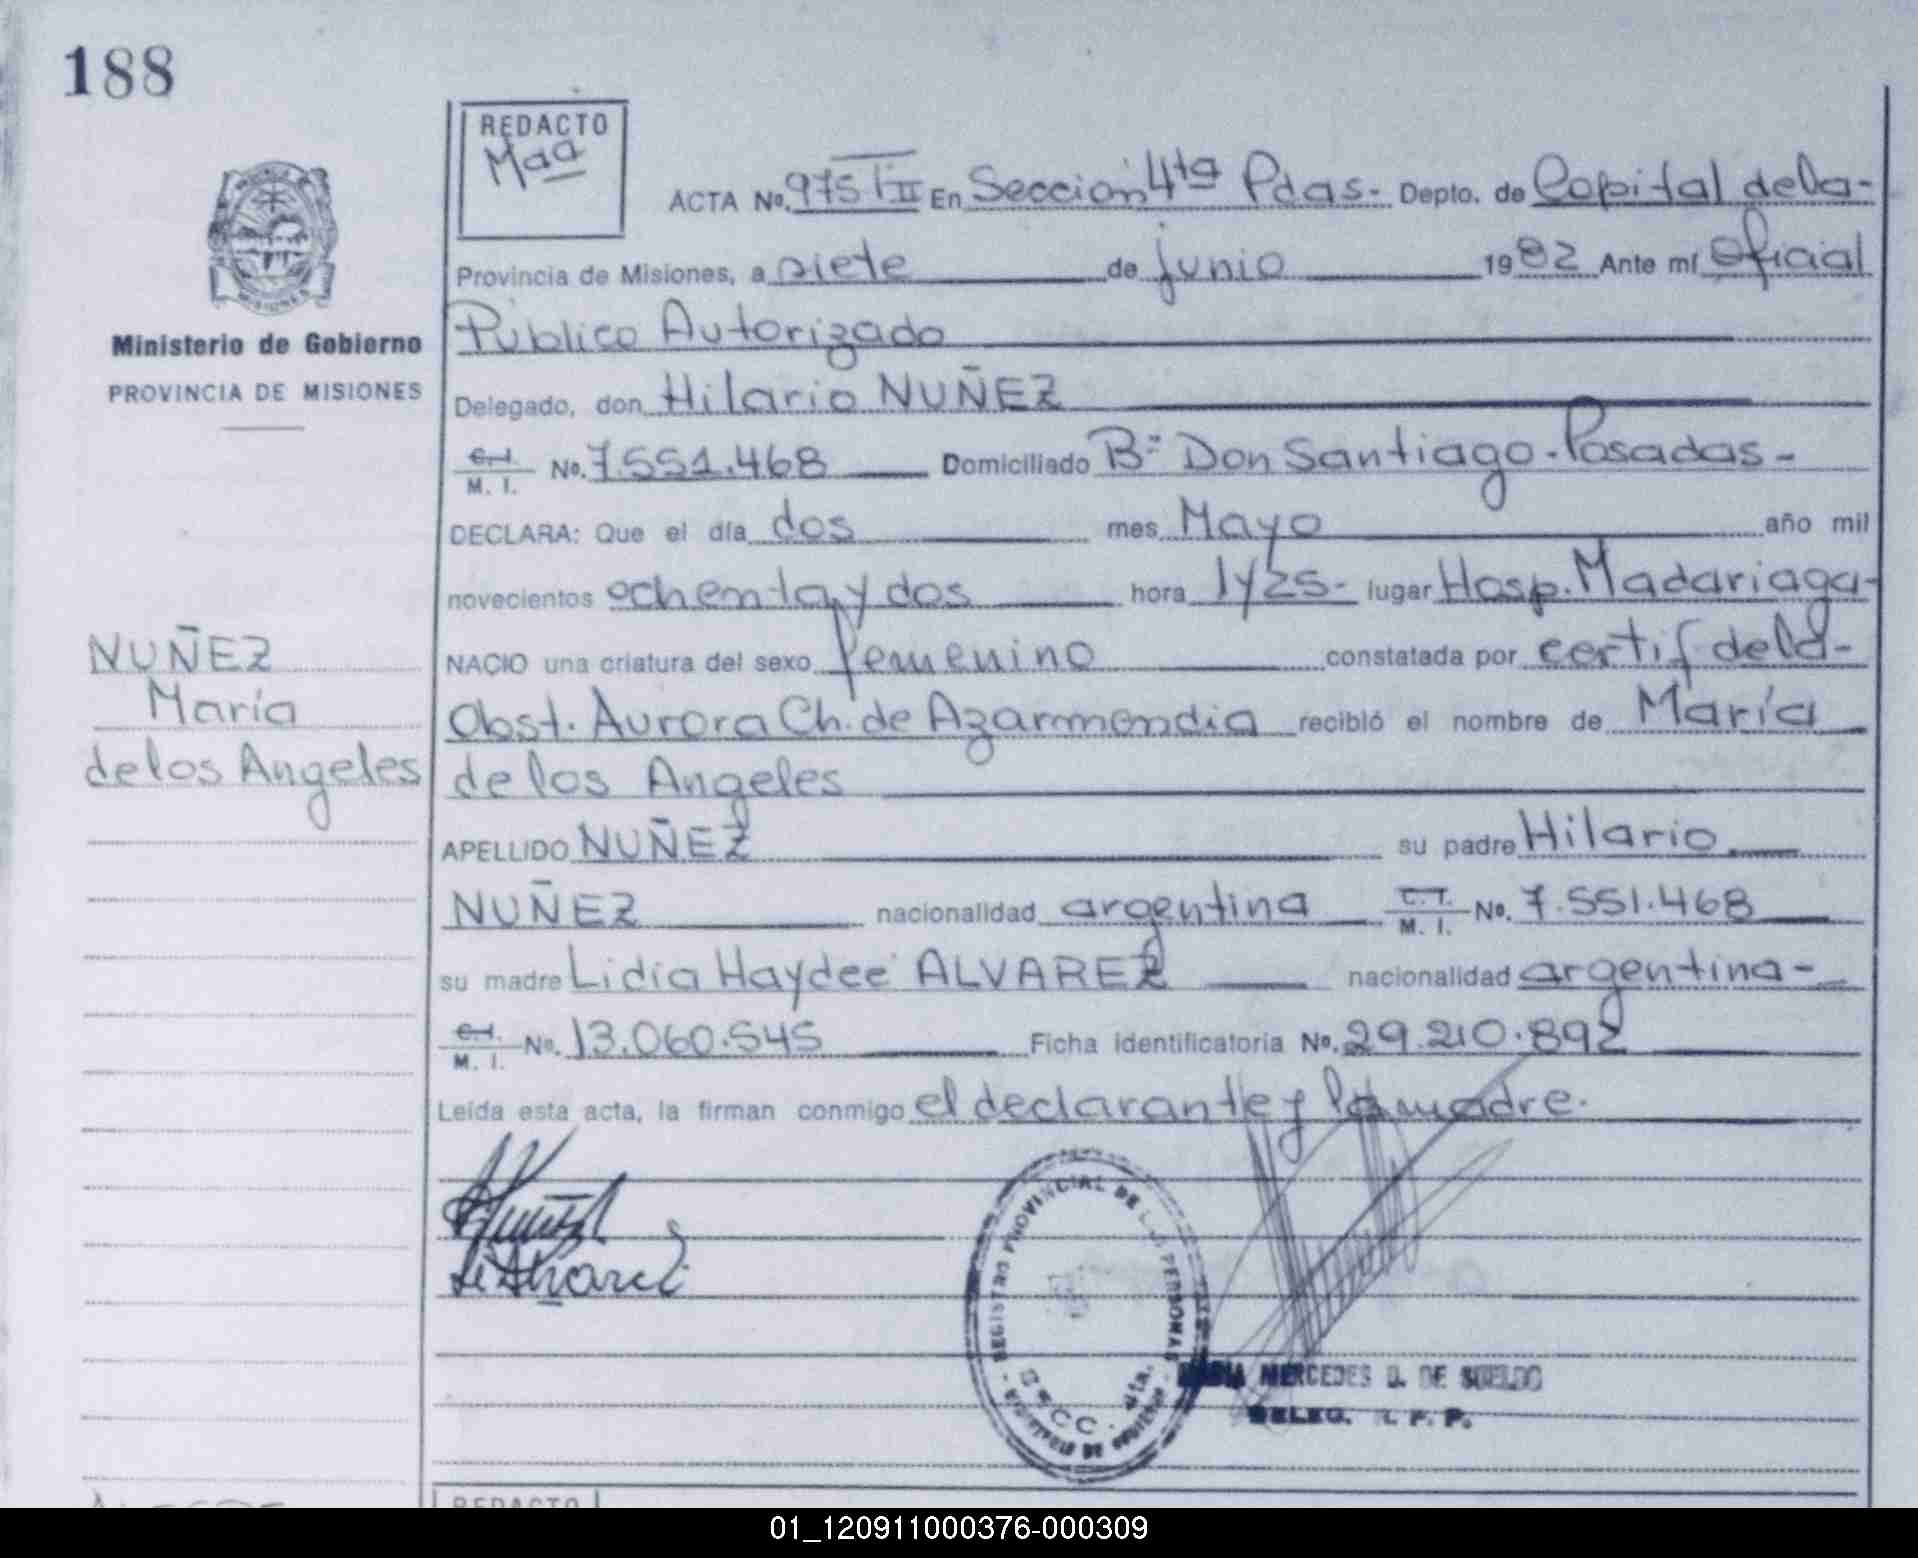 188
REDACTO
Maa
ACTA No. 975 T II En Sección 4ta Pdas- Depto. de Capital dela-
Provincia de Misiones, a siete de junio 1982 Ante mí Oficial
Público Autorizado
Delegado, don Hilario NUÑEZ
C.I. M. I. No. 7.551.468 Domiciliado Bº Don Santiago-Posadas-
DECLARA: Que el día dos mes Mayo año mil
novecientos ochenta y dos hora 1y25- lugar Hosp. Madariaga-
NACIO una criatura del sexo femenino constatada por certif dela-
Obst. Aurora Ch. de Azarmendia recibló el nombre de María
de los Angeles
APELLIDO NUÑEZ su padre Hilario
NUÑEZ nacionalidad argentina C.I. M. I. No. 7.551.468
su madre Lidia Haydeé ALVAREZ nacionalidad argentina-
C.I. M. I. No. 13.060.545 Ficha identificatoria No. 29.210.892
Leída esta acta, la firman conmigo el declarante y la madre.
MISIONES
Ministerio de Gobierno
PROVINCIA DE MISIONES
NUÑEZ
María
de los Angeles
HNuñez
LAlvarez
REGISTRO PROVINCIAL DE LAS PERSONAS
SECC. 4ta.
MARIA MERCEDES D. DE SUELDO
DELEG. R. P. P.
REDACTO
01_120911000376-000309